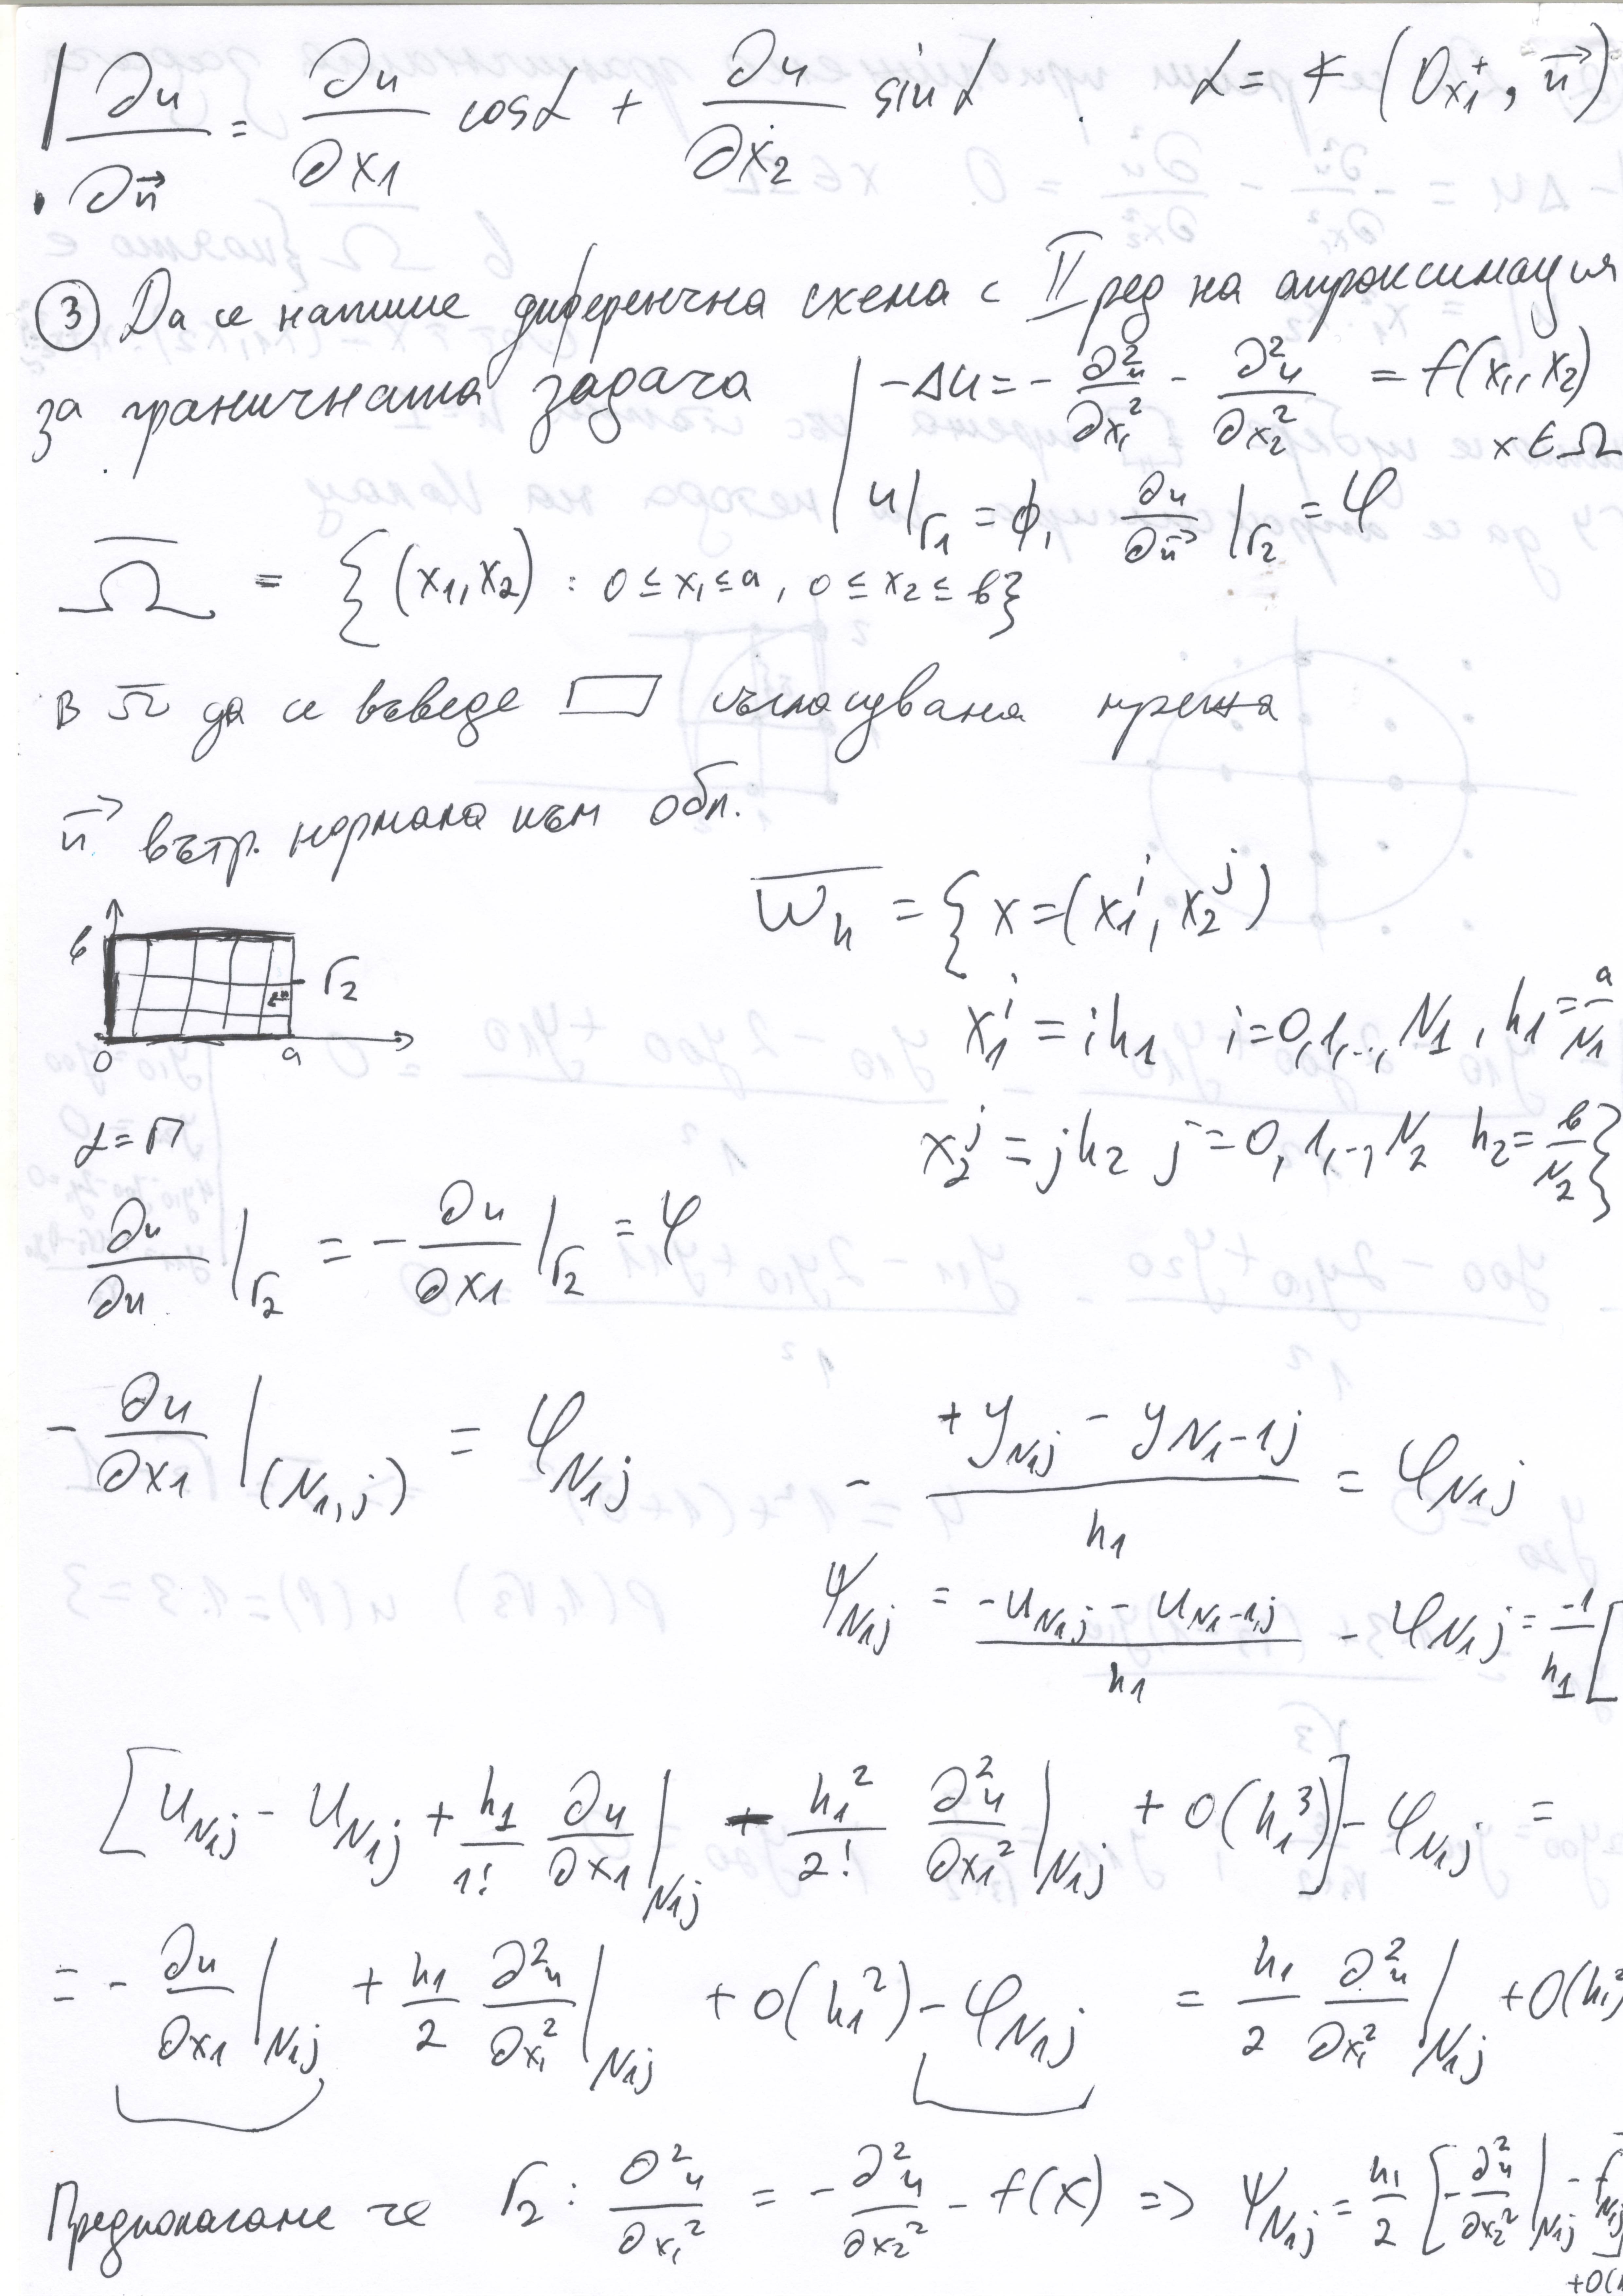 ∂u/∂n⃗ = ∂u/∂x₁ cosα + ∂u/∂x₂ sinα . α = ∢(Ox₁⁺, n⃗)
③ Да се напише диференчна схема с II ред на апроксимация
за граничната задача | -Δu = - ∂²u/∂x₁² - ∂²u/∂x₂² = f(x₁, x₂)
x ∈ Ω
u|Γ₁ = ϕ, ∂u/∂n⃗ |Γ₂ = φ
Ω̅ = {(x₁, x₂) : 0 ≤ x₁ ≤ a, 0 ≤ x₂ ≤ b}
В Ω̅ да се въведе ▭ съгласувана мрежа
n⃗ вътр. нормала към обл.
ω̅ₕ = { x = (x₁ⁱ, x₂ʲ)
b
Γ₂
n
0 a
x₁ⁱ = ih₁ i = 0, 1, .., N₁, h₁ = a/N₁
α = π
x₂ʲ = jh₂ j = 0, 1, .., N₂ h₂ = b/N₂ }
∂u/∂n |Γ₂ = - ∂u/∂x₁ |Γ₂ = φ
- ∂u/∂x₁ |(N₁, j) = φ_{N₁j} - (+y_{N₁j} - y_{N₁-1j})/h₁ = φ_{N₁j}
ψ_{N₁j} = (-u_{N₁j} - u_{N₁-1,j})/h₁ - φ_{N₁j} = -1/h₁ [
[u_{N₁j} - u_{N₁j} + h₁/1! ∂u/∂x₁ |_{N₁j} - h₁²/2! ∂²u/∂x₁² |_{N₁j} + O(h₁³)] - φ_{N₁j} =
= - ∂u/∂x₁ |_{N₁j} + h₁/2 ∂²u/∂x₁² |_{N₁j} + O(h₁²) - φ_{N₁j} = h₁/2 ∂²u/∂x₁² |_{N₁j} + O(h₁²)
Предполагаме че Γ₂ : ∂²u/∂x₁² = - ∂²u/∂x₂² - f(x) => ψ_{N₁j} = h₁/2 [- ∂²u/∂x₂² |_{N₁j} - f_{N₁j}]
+O(